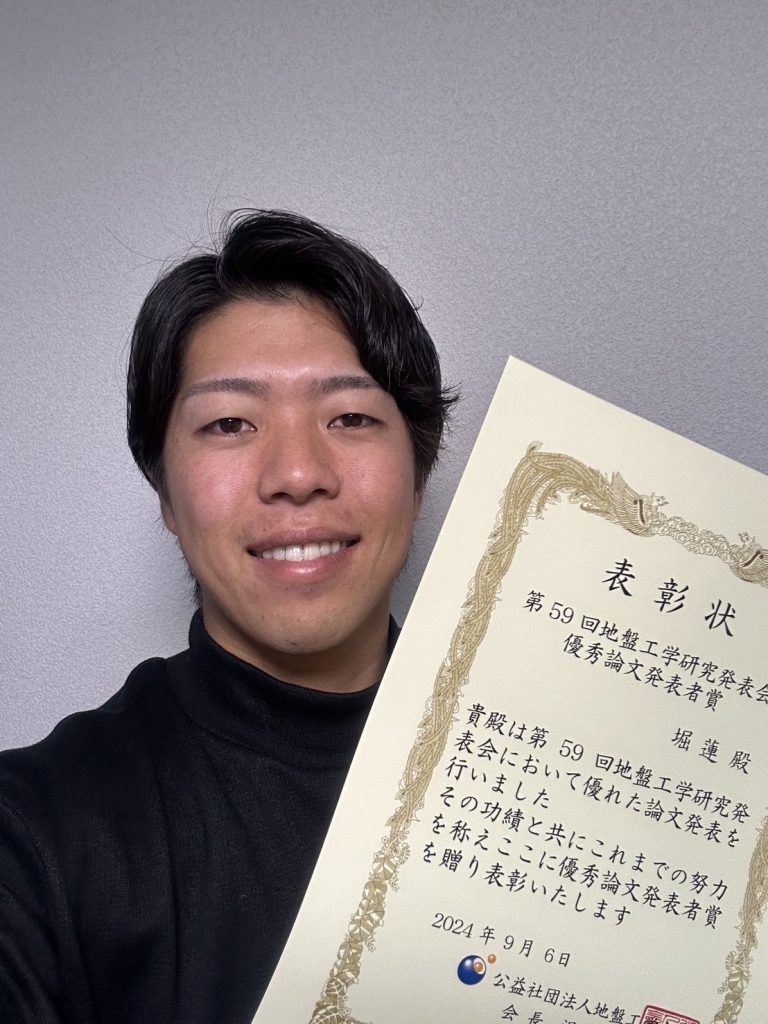 表彰状
第59回地盤工学研究発表会
優秀論文発表者賞
堀蓮殿
貴殿は第 59 回地盤工学研究発
表会において優れた論文発表を
行いました
その功績と共にこれまでの努力
を称えここに優秀論文発表者賞
を贈り表彰いたします
2024 年 9 月 6日
公益社団法人地盤工
会長